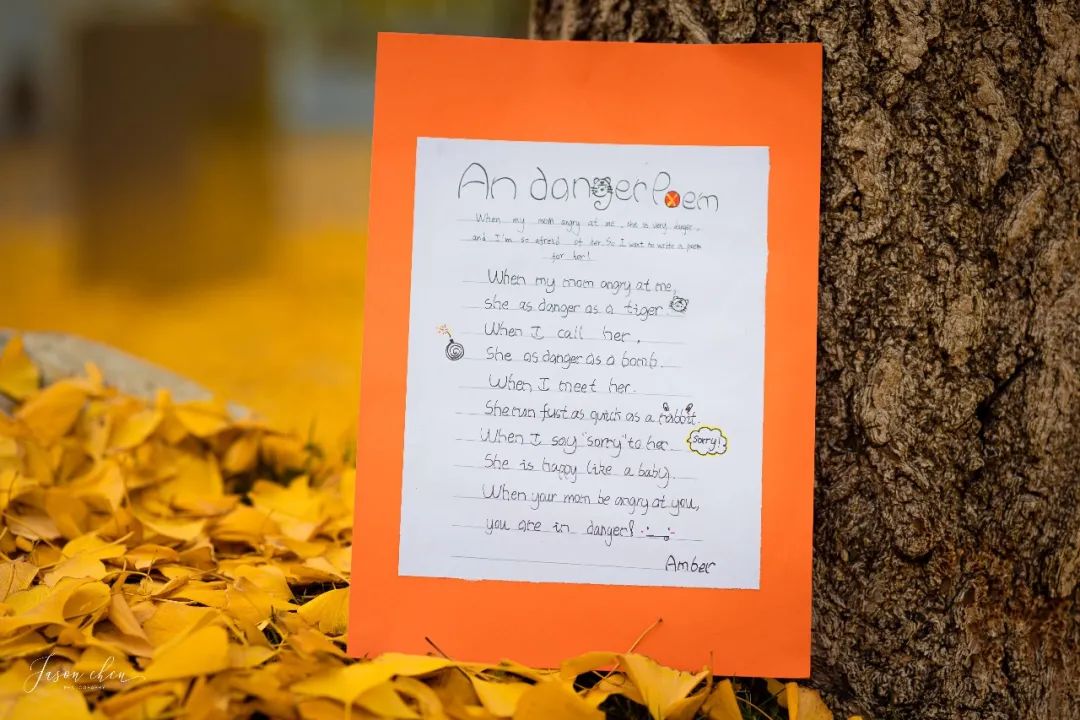 An danger Poem
When my mom angry at me, she is very danger,
and I'm so afreid of her. So I want to write a poem
for her!
When my mom angry at me,
she as danger as a tiger.
When I call her,
She as danger as a bomb.
When I meet her.
She run fust as quick as a rabbit.
When I say "sorry" to her.
sorry!
She is happy like a baby.
When your mom be angry at you,
you are in danger!
Amber
Jason chen
PHOTOGRAPHY